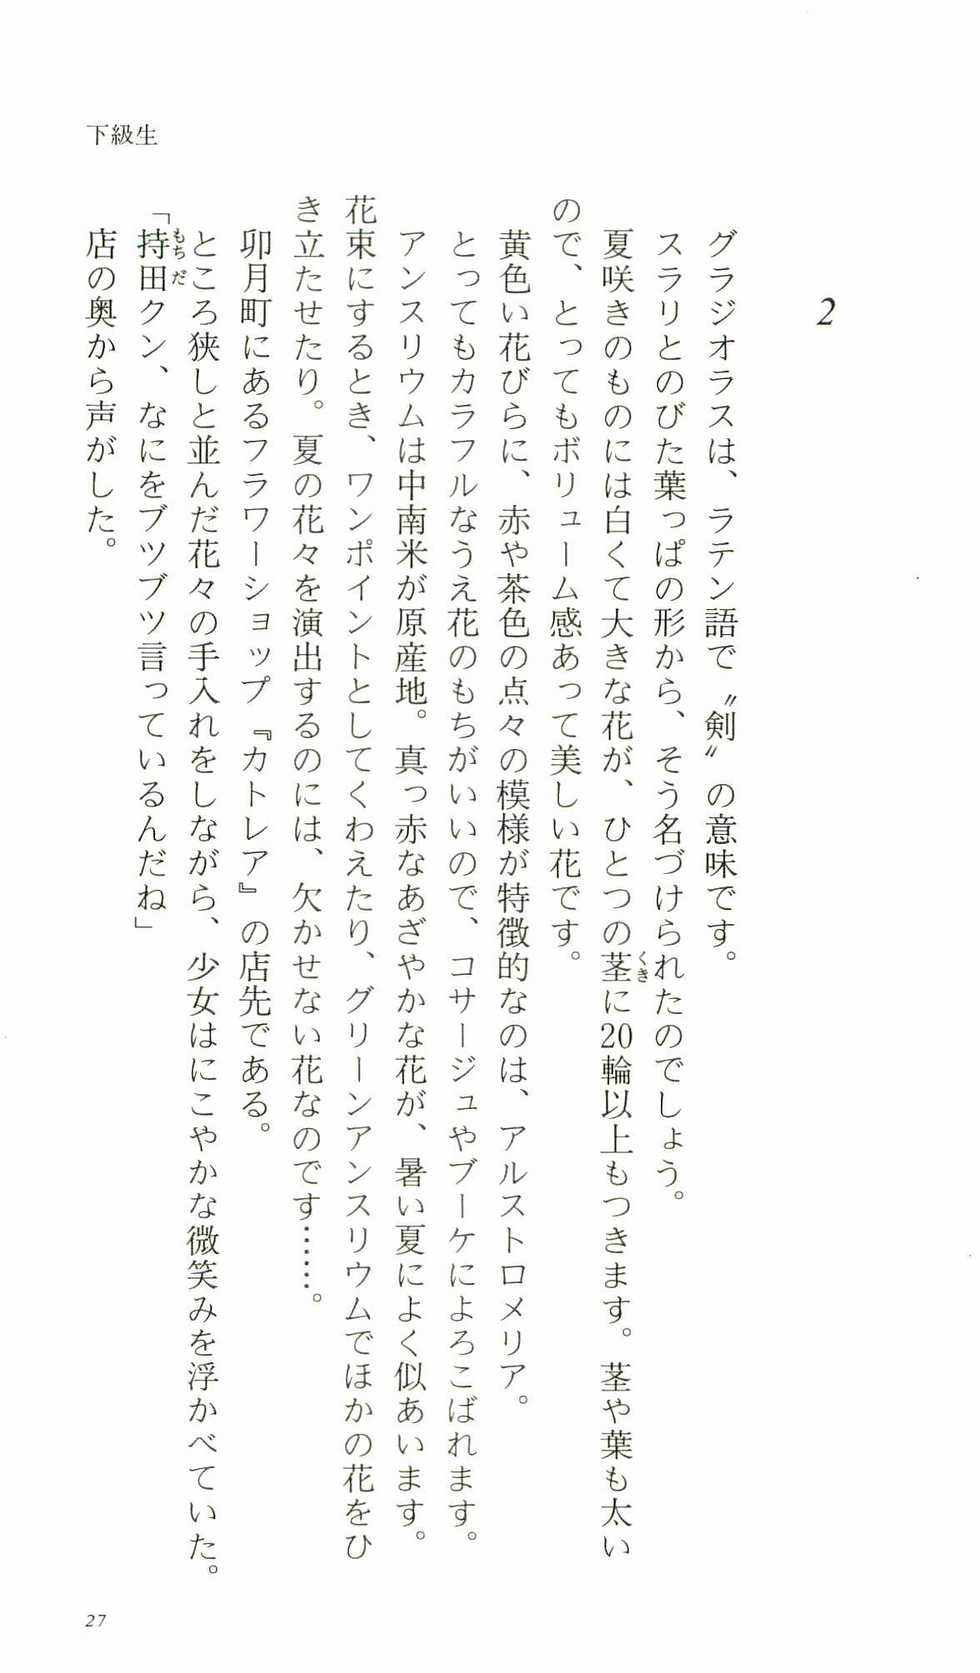 下級生
2
グラジオラスは、ラテン語で〝剣〟の意味です。
スラリとのびた葉っぱの形から、そう名づけられたのでしょう。
夏咲きのものには白くて大きな花が、ひとつの茎に20輪以上もつきます。茎や葉も太い
くき
ので、とってもボリューム感あって美しい花です。
黄色い花びらに、赤や茶色の点々の模様が特徴的なのは、アルストロメリア。
とってもカラフルなうえ花のもちがいいので、コサージュやブーケによろこばれます。
アンスリウムは中南米が原産地。真っ赤なあざやかな花が、暑い夏によく似あいます。
花束にするとき、ワンポイントとしてくわえたり、グリーンアンスリウムでほかの花をひ
き立たせたり。夏の花々を演出するのには、欠かせない花なのです……。
卯月町にあるフラワーショップ『カトレア』の店先である。
ところ狭しと並んだ花々の手入れをしながら、少女はにこやかな微笑みを浮かべていた。
「持田クン、なにをブツブツ言っているんだね」
もちだ
店の奥から声がした。
27